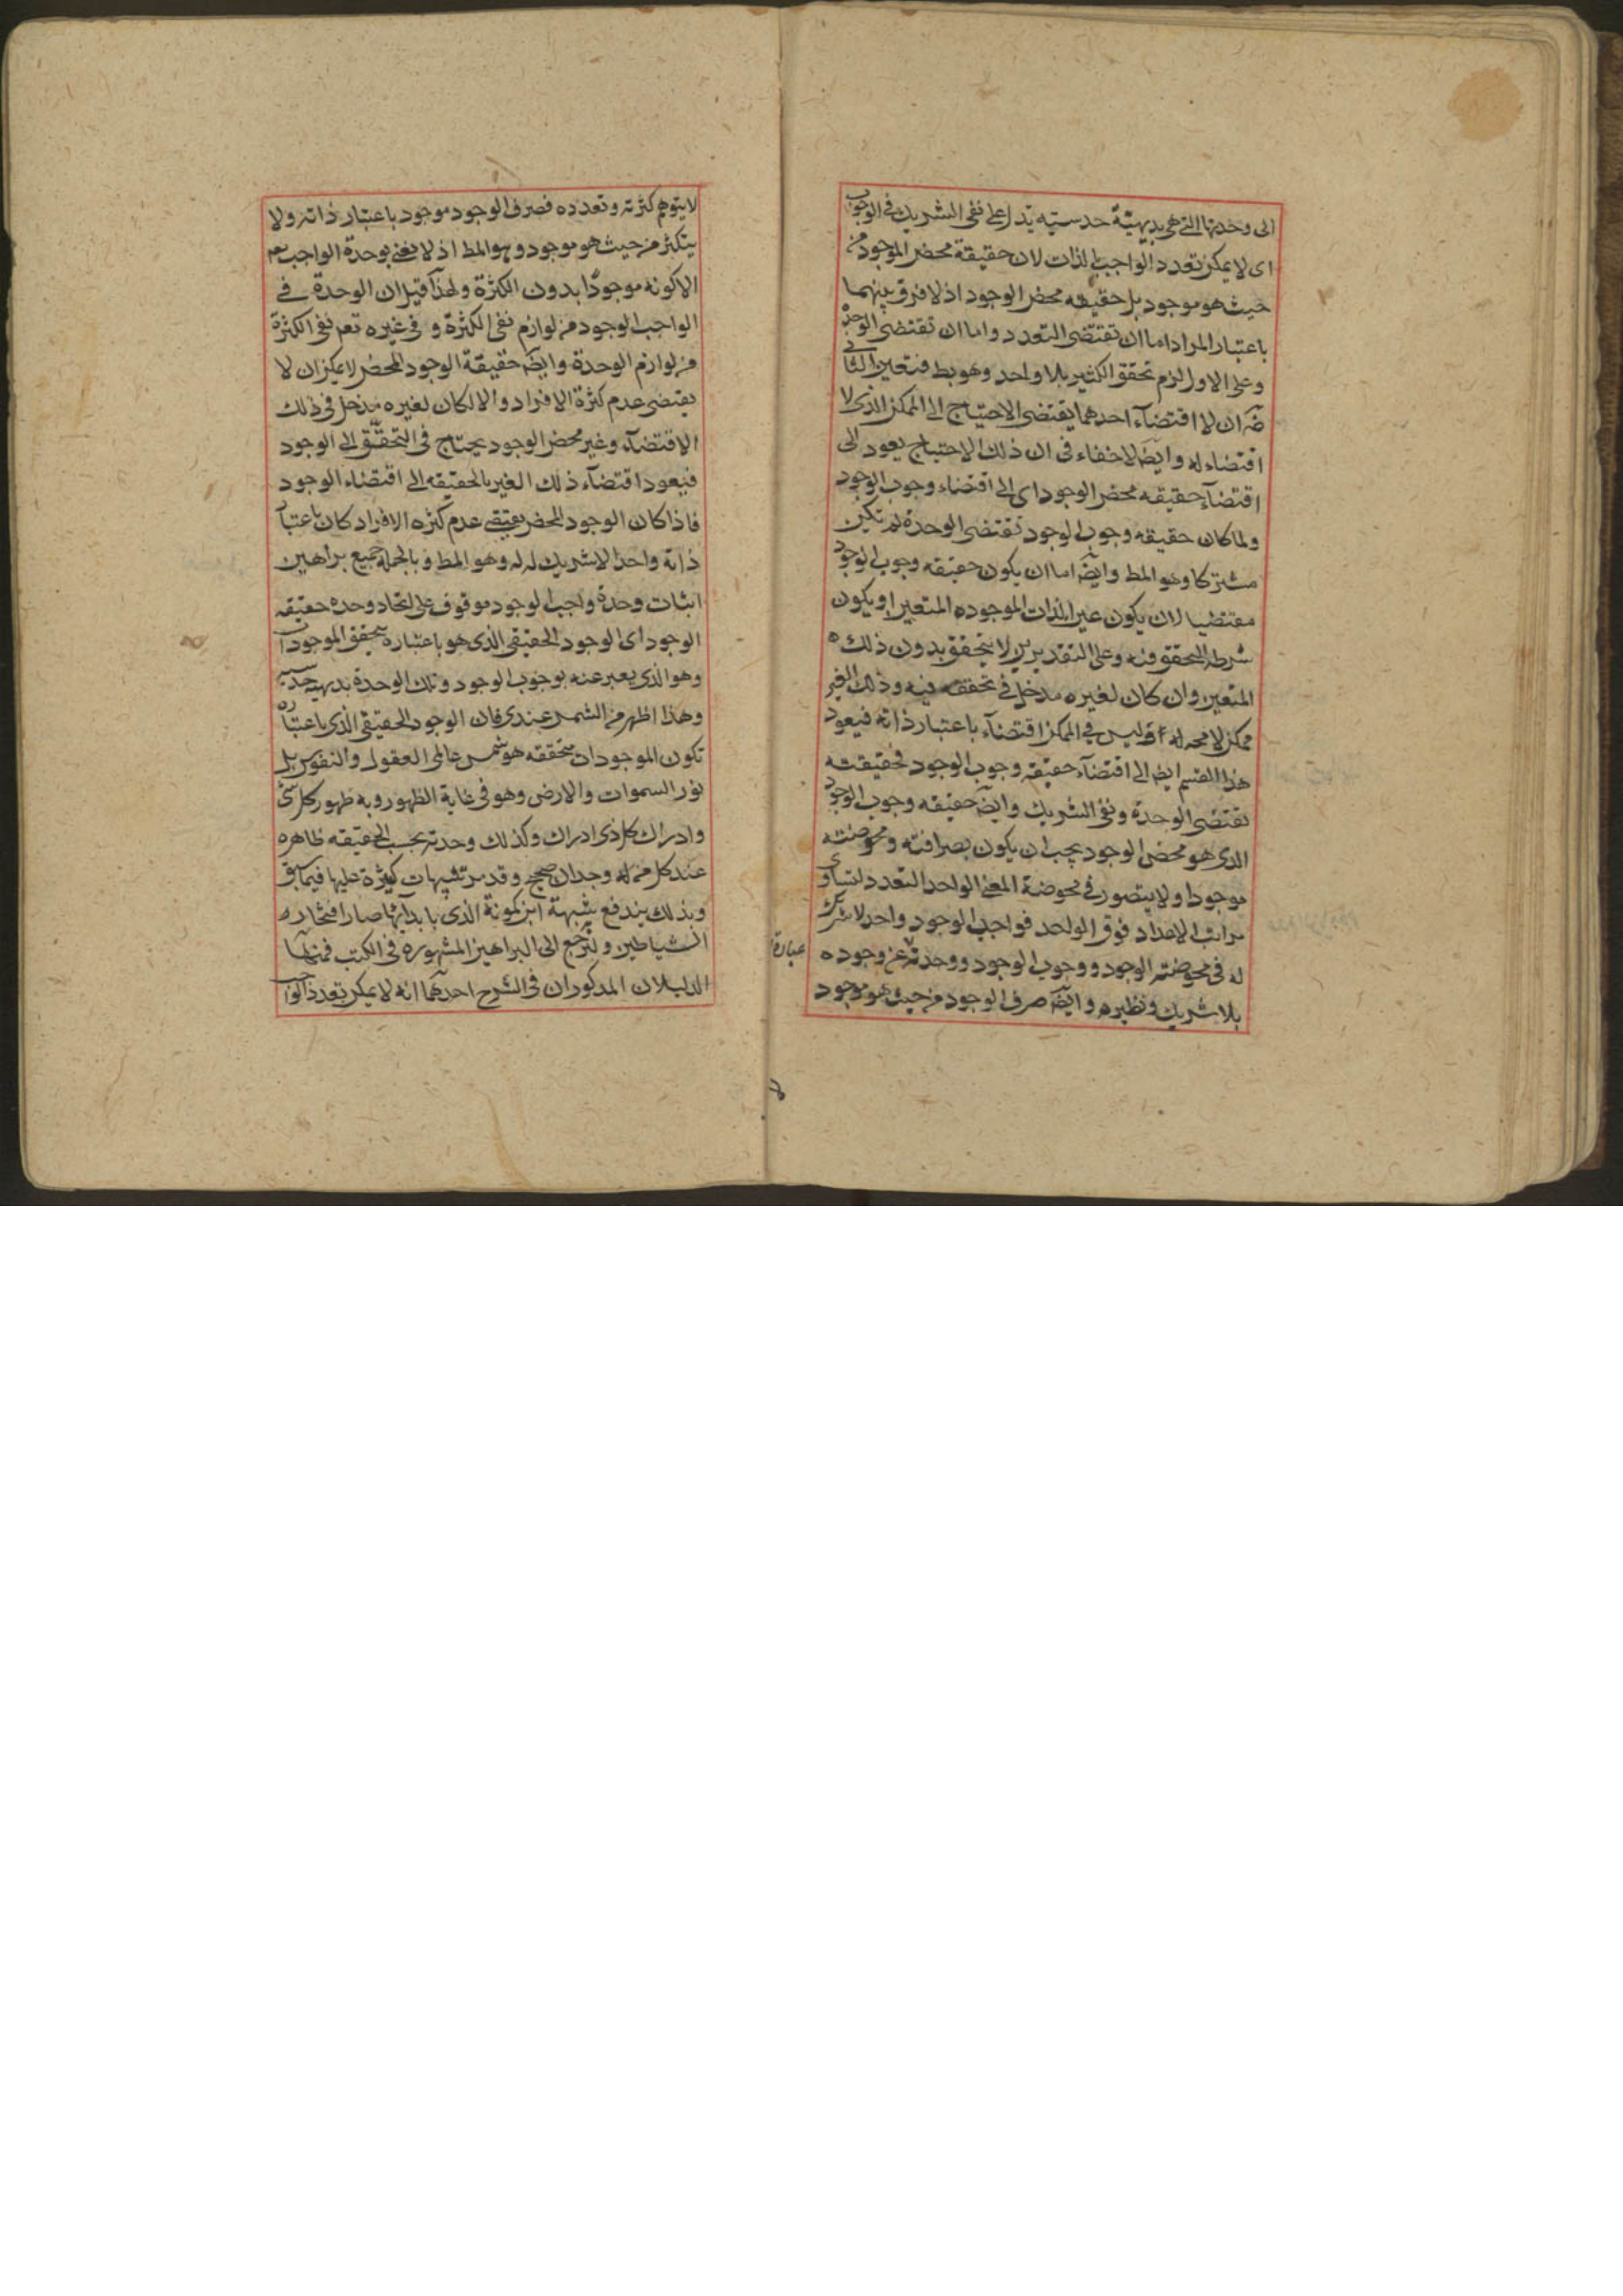 الى وحدتها التى هى بديهيّة حدسيه تدل على نفى الشريك فى الوجوب
اى لا يمكن تعدد الواجب بالذات لان حقيقة محض الموجود من
حيث هو موجود بل حقيقه محض الوجود اذ لا فرق بينهما
باعتبار المراد اما ان تقتضى التعدد واما ان تقتضى الوحدة
وعلى الاول لزم تحقق الكثير بلا واحد وهو بط فتعين الثانى
ضه ان لا اقتضاء احدهما يقتضى الاحتياج الى الممكن الذى لا
اقتضاء له وايضا لا خفاء فى ان ذلك الاحتياج يعود الى
اقتضآء حقيقه محض الوجود اى الى اقتضاء وجوب الوجود
ولما كان حقيقه وجوب الوجود تقتضى الوحدة لم تكن
مشتركا وهو المط وايضه اما ان يكون حقيقه وجوب الوجود
مقتضيا لان يكون عين الذات الموجوده المتعين او يكون
شرطه التحقق فيه وعلى التقديرين لا يتحقق بدون ذلك
المتعين وان كان لغيره مدخل فى تحققه فيه وذلك الغير
ممكن لا محه له وليس فى الممكن اقتضآء باعتبار ذاته فيعود
هذا القسم ايضا الى اقتضآء حقيقه وجوب الوجود فحقيقته
تقتضى الوحدة ونفى الشريك وايضه حقيقه وجوب الوجود
الذى هو محض الوجود يجب ان يكون بصرافته ومحوضته
موجودا ولا يتصور فى محوضة المعنى الواحد التعدد لتساوى
مراتب الاعداد فوق الواحد فواجب الوجود واحد لا شريك
له فى محوضته الوجود ووجوب الوجود ووحدته عن وجوده
عبارة
بلا شريك ونظيره وايضه صرف الوجود من حيث هو موجود
لا يتوهم كثرته وتعدده فصرف الوجود موجود باعتبار ذاته ولا
يتكثر من حيث هو موجود وهو المط اذ لا يعنى بوحدة الواجب
الا كونه موجودا بدون الكثرة ولهذا قيل ان الوحدة فى
الواجب الوجود من لوازم نفى الكثرة و فى غيره نفى الكثرة
من لوازم الوحدة وايضه حقيقة الوجود المحض لا يمكن ان لا
يقتضى عدم كثرة الافراد والا لكان لغيره مدخل فى ذلك
الاقتضآء وغير محض الوجود يحتاج فى التحقق الى الوجود
فيعود اقتضآء ذلك الغير بالحقيقه الى اقتضاء الوجود
فاذا كان الوجود المحض يقتضى عدم كثره الافراد كان باعتبار
ذاته واحدا لا شريك له وهو المط وبالجملة جميع براهين
اثبات وحدة واجب الوجود موقوف على اتحاد وحده حقيقه
الوجود اى الوجود الحقيقى الذى هو باعتباره يتحقق الموجودات
وهو الذى يعبر عنه بوجوب الوجود وتلك الوحدة بديهيه حدسيه
وهذا اظهر من الشمس عندى فان الوجود الحقيقى الذى باعتباره
تكون الموجودات متحققه هو شمس عالمى العقول والنفوس بل
نور السموات والارض وهو فى غاية الظهور وبه ظهور كل شئ
وادراك كل ذى ادراك وكذلك وحدته بحسب الحقيقه ظاهره
عند كل من له وجدان صحيح وقد مر تنبيهات كثيرة عليها فيما سبق
وبذلك يندفع شبهة ابن كمونة الذى بابدائها صار افتخاره
الشياطين ولنرجع الى البراهين المشهوره فى الكتب فمنها
الدليلان المذكوران فى الشرح احدهما انه لا يمكن تعدد